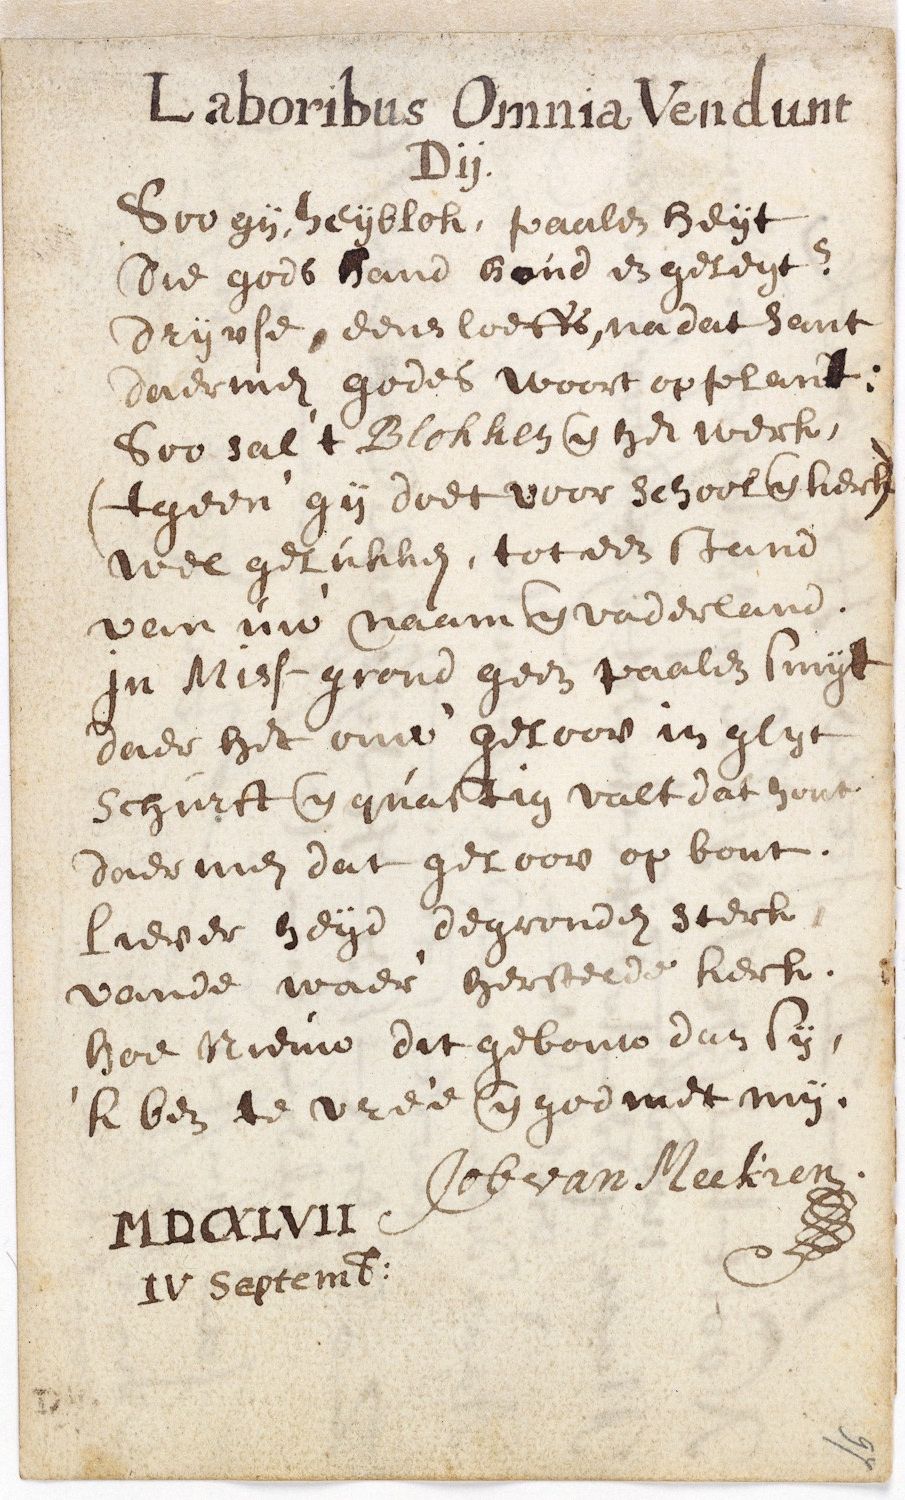 Laboribus Omnia Vendunt
Dij.
Soo gij, heyblok, paalen heyt
Die gods hand houd en geleyt:
Drijvse, eens loeffs, na dat sant
daermen godes woort op plant:
Soo sal 't Blokken en het werk,
('t geen' gij doet voor school en kerk)
wel gelukken, tot een stand
van uw' naam en vaderland.
in Miss-grond geen paalen smyt
daer het ouw' geloov in glyt
Schurft en quastig valt dat hout
daermen dat geloov op bout.
Liever heyd de gronden sterk,
vande waer' herstelde kerk.
hoe Nieuw dit gebouw dan sy,
'k ben te vreé en god met mij.
Job van Meekren.
MDCXLVII
IV Septemb: